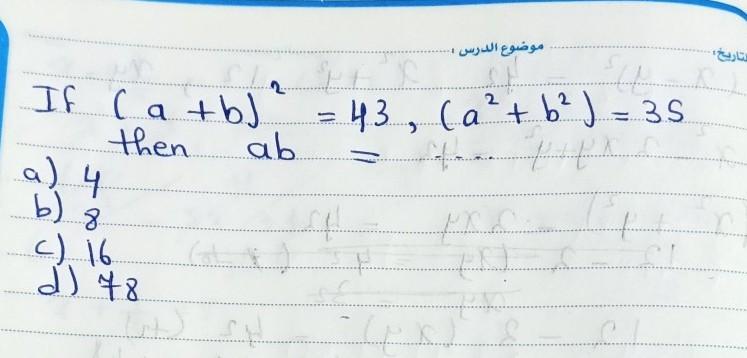 موضوع الدرس:
التاريخ:
If (a + b)² = 43, (a² + b²) = 35
then ab = ....
a) 4
b) 8
c) 16
d) 78